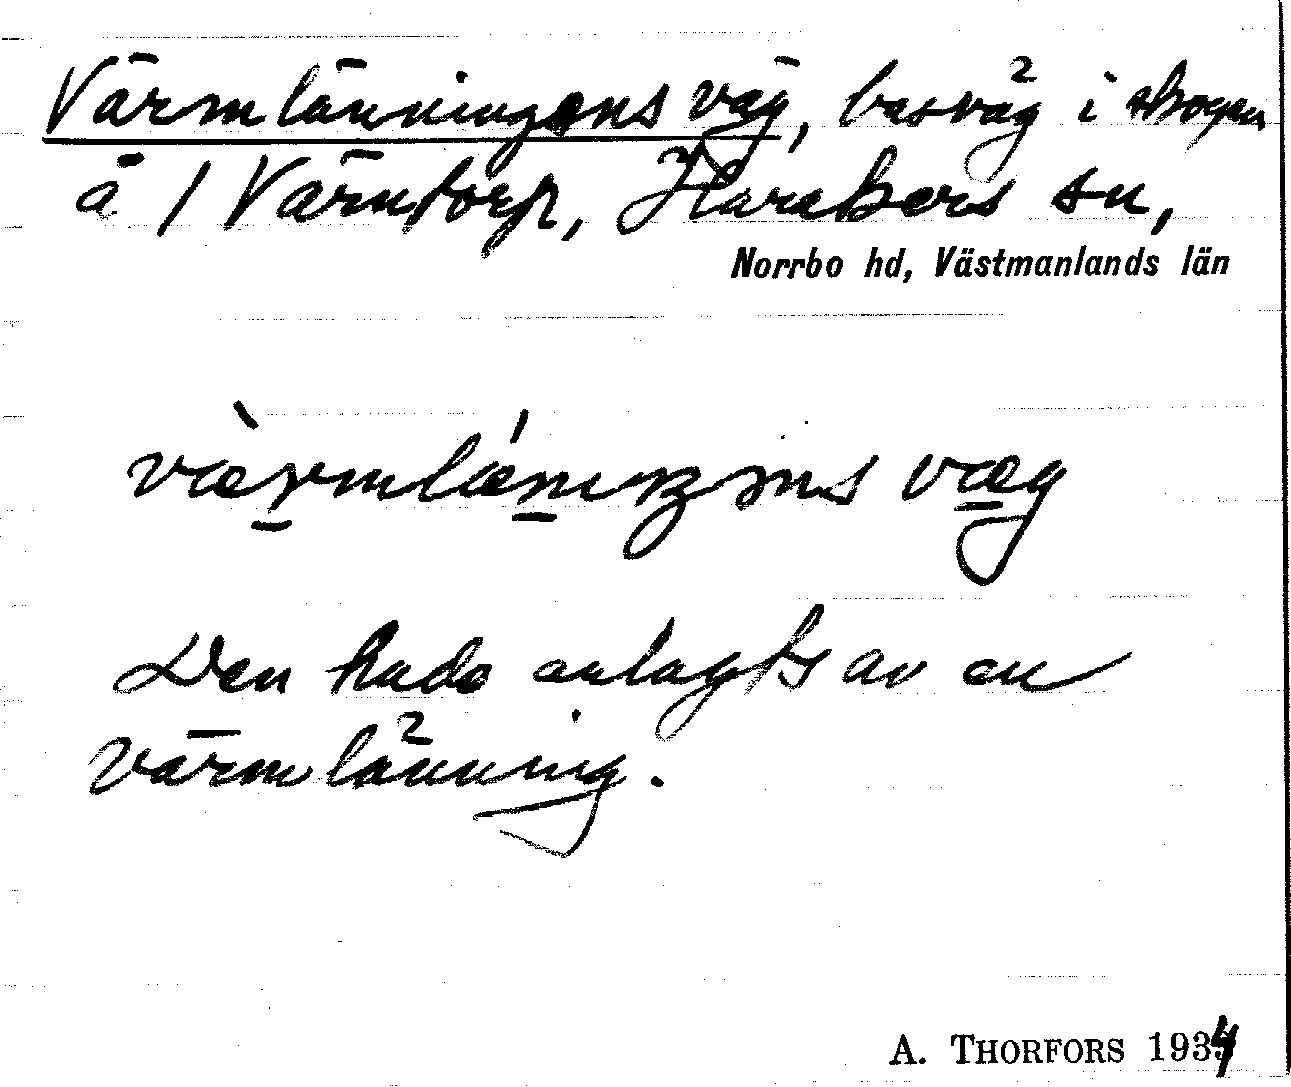 Värmlänningens väg, basväg i skogen
å 1 Värntorp, Harakers sn,
Norrbo hd, Västmanlands län
værmlæniŋəns væg
Den hade anlagts av en
värmlänning.
A. THORFORS 1934